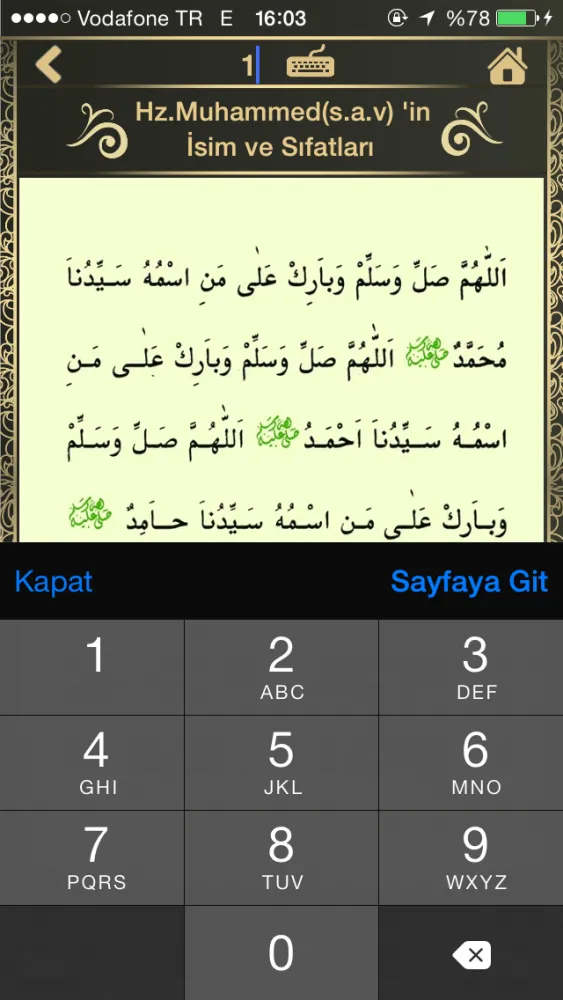 Vodafone TR E 16:03 %78
1
Hz.Muhammed(s.a.v) 'in
İsim ve Sıfatları
اَللّٰهُمَّ صَلِّ وَسَلِّمْ وَبَارِكْ عَلٰى مَنِ اسْمُهُ سَيِّدُنَا
مُحَمَّدٌ ﷺ اَللّٰهُمَّ صَلِّ وَسَلِّمْ وَبَارِكْ عَلٰى مَنِ
اسْمُهُ سَيِّدُنَا اَحْمَدُ ﷺ اَللّٰهُمَّ صَلِّ وَسَلِّمْ
وَبَارِكْ عَلٰى مَنِ اسْمُهُ سَيِّدُنَا حَامِدٌ ﷺ
Kapat Sayfaya Git
1 2 3
ABC DEF
4 5 6
GHI JKL MNO
7 8 9
PQRS TUV WXYZ
0